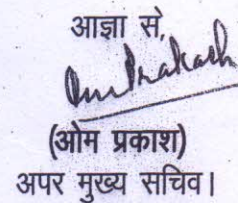 आज्ञा से,
Om Prakash
(ओम प्रकाश)
अपर मुख्य सचिव।